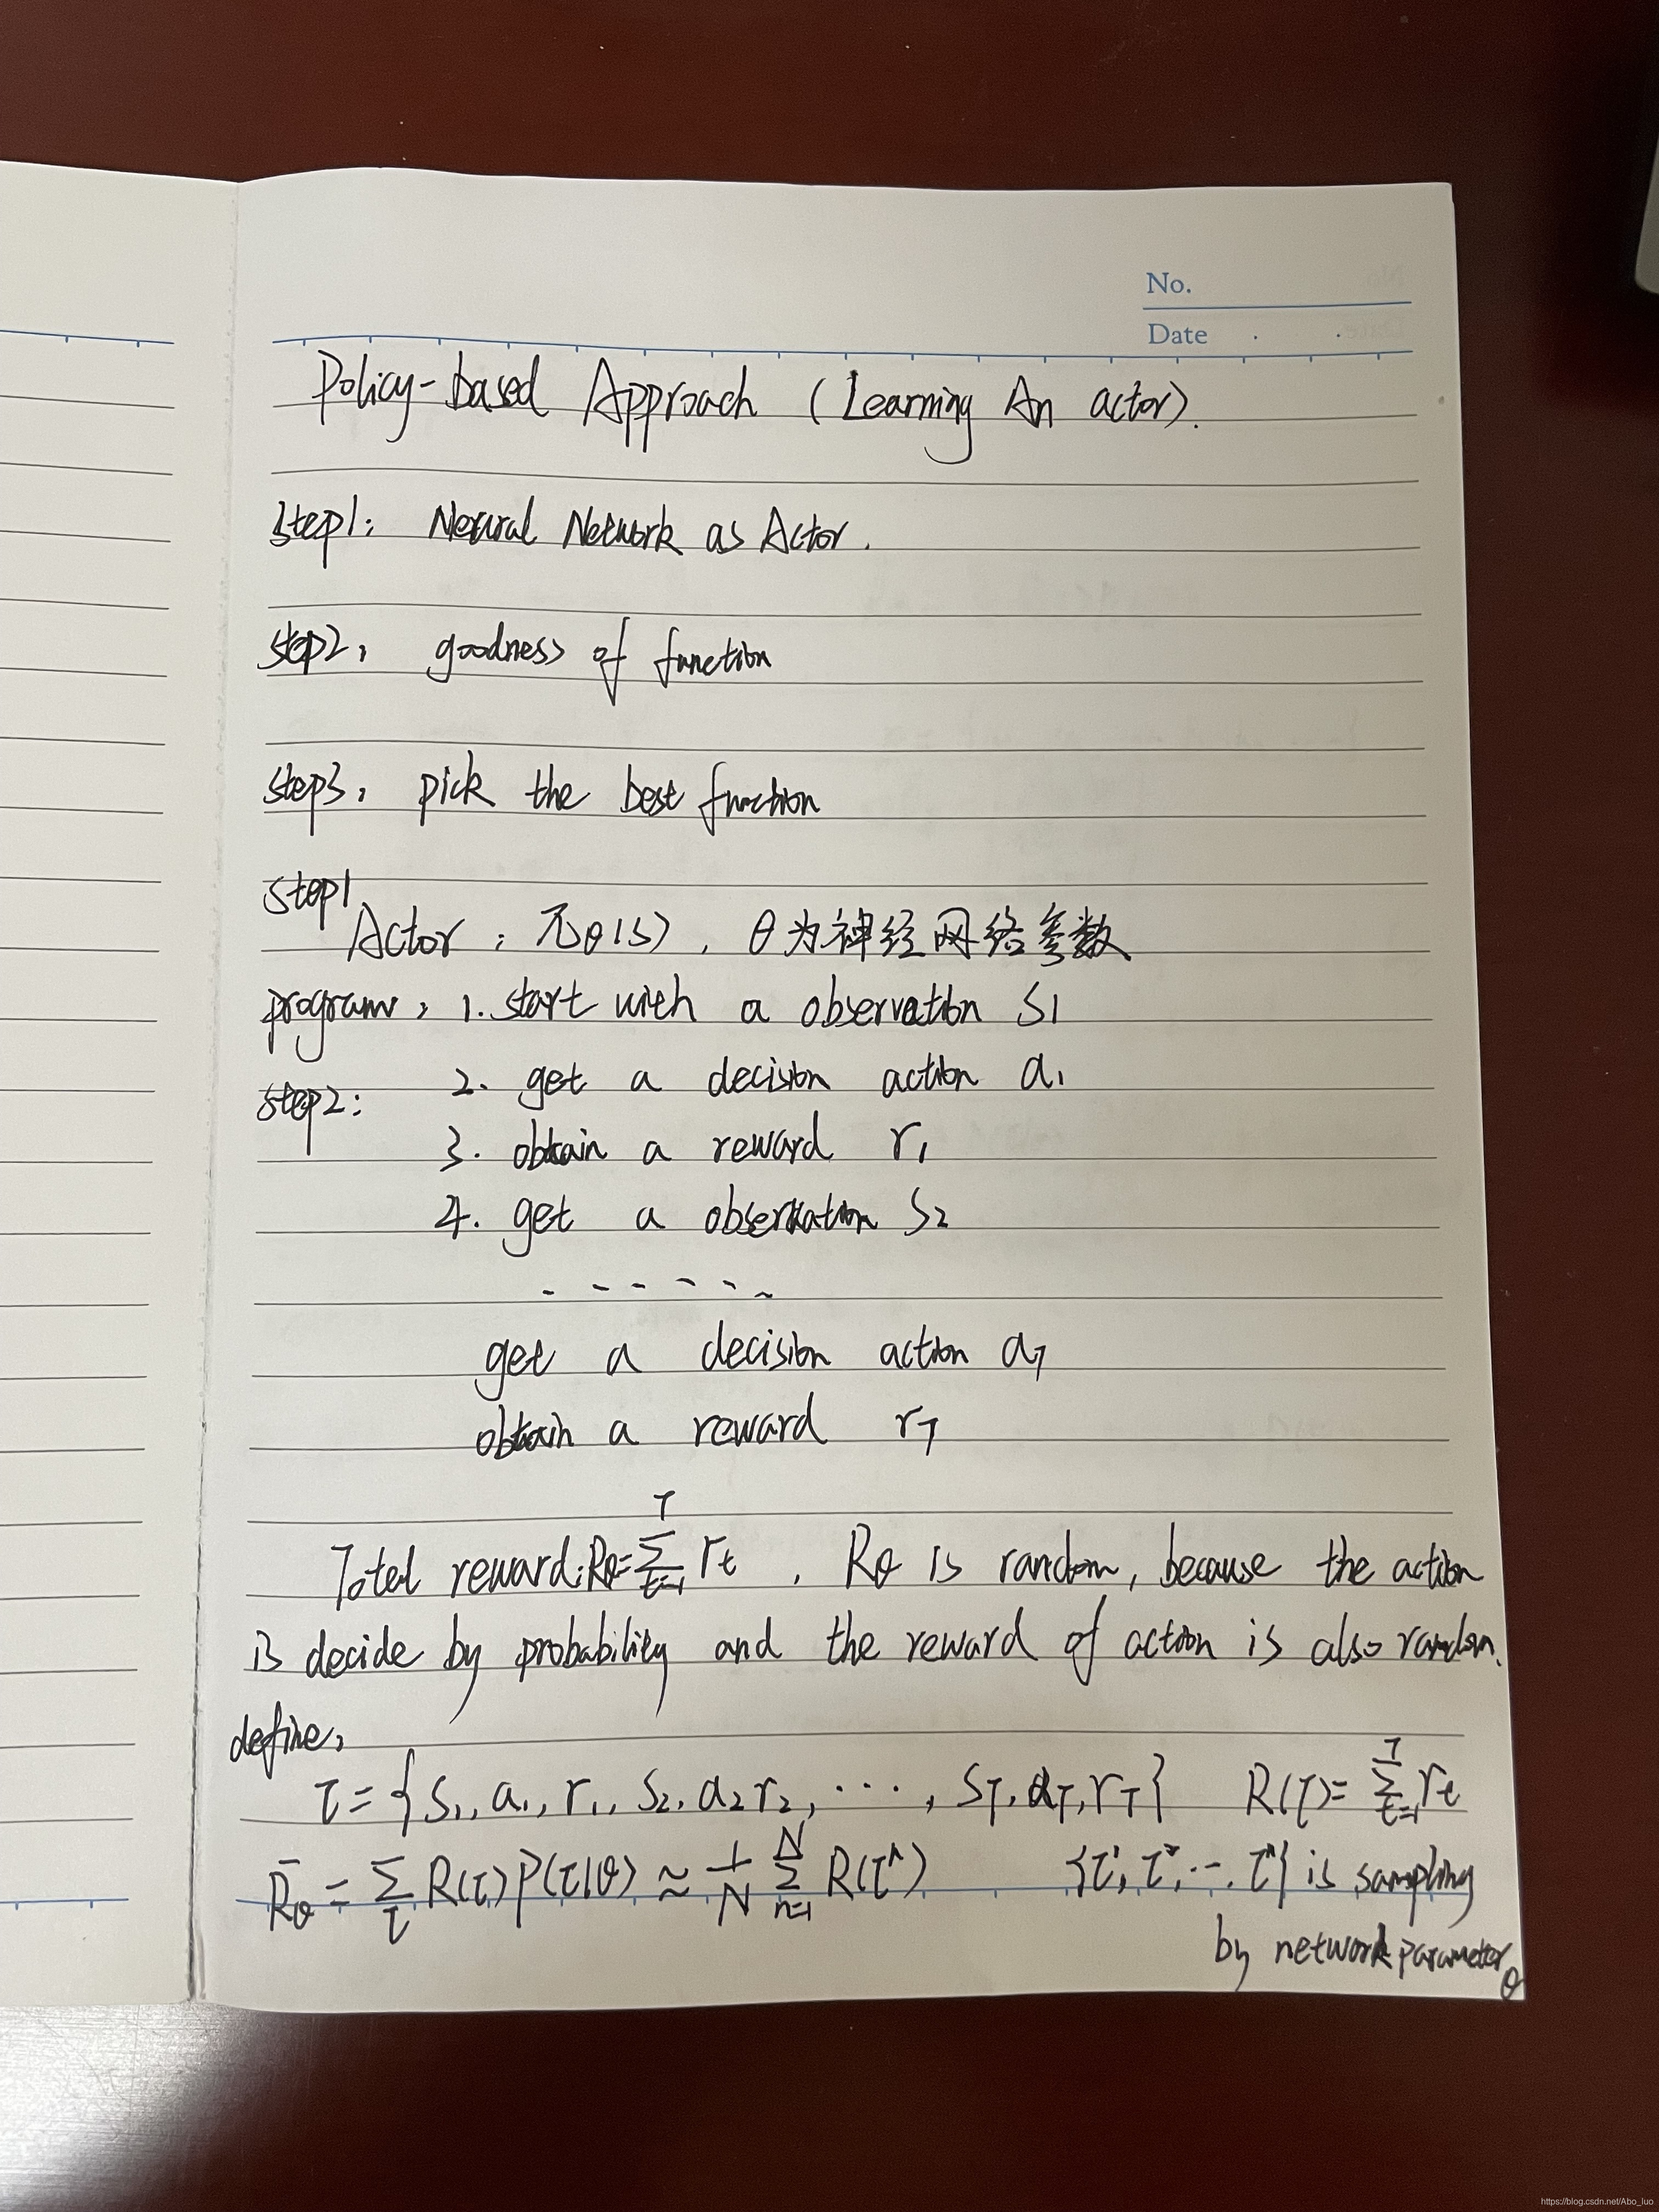 No.
Date
Policy-based Approach (Learning An actor).
step1: Neural Network as Actor.
step2: goodness of function
step3: pick the best function
step1
Actor: πθ(s), θ为神经网络参数
program: 1. start with a observation S1
2. get a decision action a1
step2:
3. obtain a reward r1
4. get a observation S2
- - - - - ~
get a decision action aT
obtain a reward rT
Total reward: Rθ=∑_{t=1}^{T} rt, Rθ is random, because the action
is decide by probability and the reward of action is also random.
define:
τ = {s1, a1, r1, s2, a2 r2, ..., sT, aT, rT} R(τ) = ∑_{t=1}^{T} rt
R̄θ = ∑_τ R(τ)P(τ|θ) ≈ 1/N ∑_{n=1}^{N} R(τ^n) {τ^1, τ^2, ... τ^n} is sampling
by network parameter θ
https://blog.csdn.net/Abo_luo